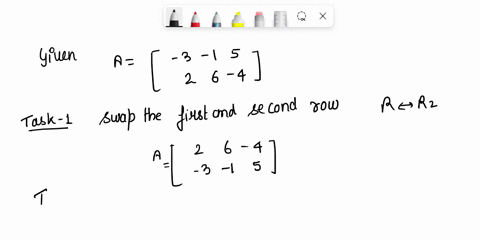 Given A = [ -3 -1 5
2 6 -4 ]
Task-1 swap the first and second row R ↔ R2
A = [ 2 6 -4
-3 -1 5 ]
T